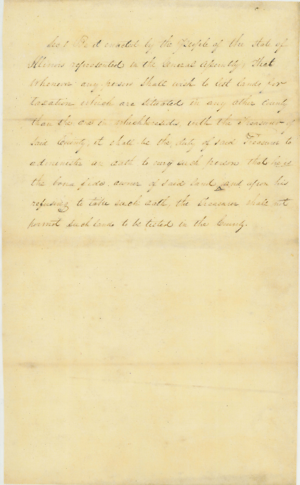 Sec 1 Be it enacted by the People of the State of
Illinois represented in the General Assembly, That
Whenever any person Shall wish to list lands for
taxation which are situated in any other County
than the one in which he resides with the Treasurer of
Said County, it shall be the duty of said Treasurer to
administer an oath to any such person that he is
the bona fide owner of said land and upon his
refusing to take such oath, the Treasurer shall not
permit such land to be listed in the County.